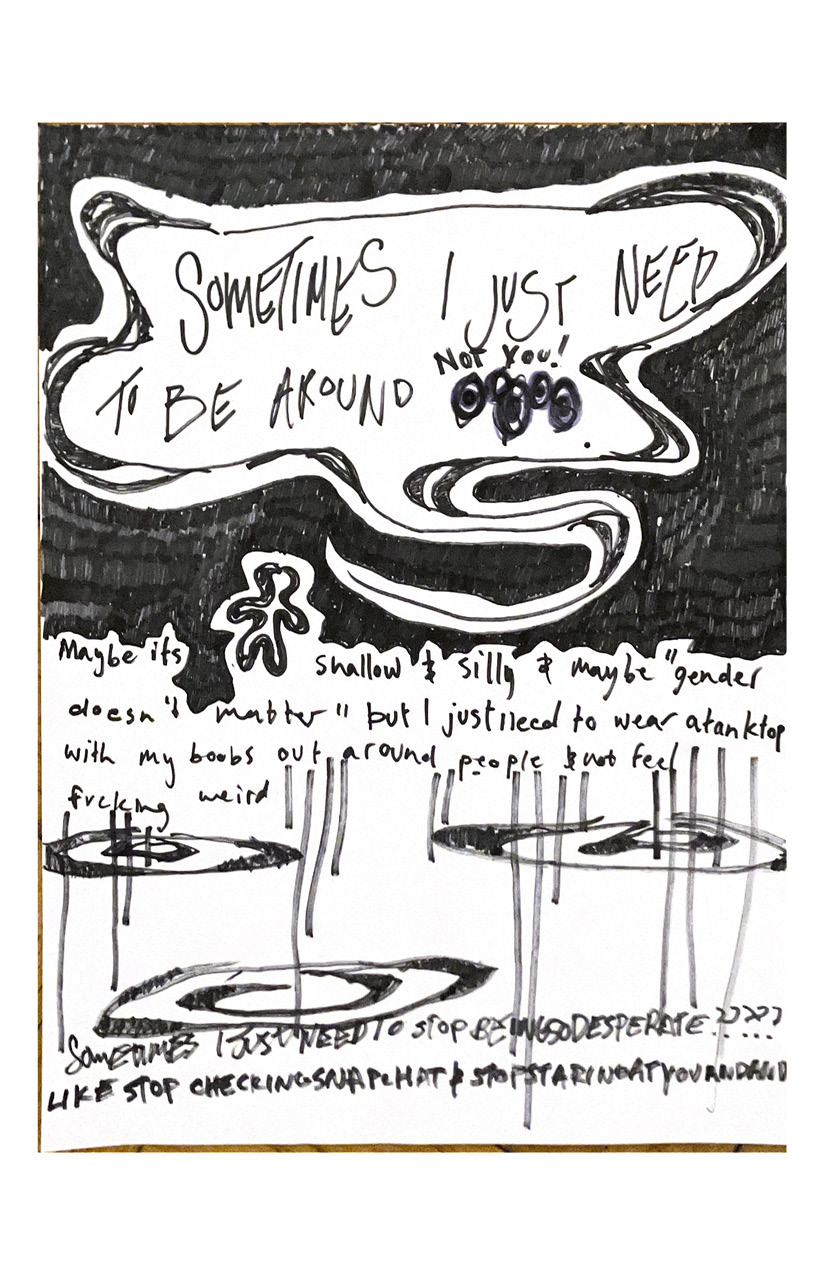 SOMETIMES I JUST NEED
NOT YOU!
TO BE AROUND .
Maybe its shallow & silly & maybe "gender
doesn't matter" but I just need to wear a tank top
with my boobs out around people & not feel
fvcking weird
SOMETIMES I JUST NEED TO STOP BEING SO DESPERATE ?????
LIKE STOP CHECKING SNAPCHAT & STOP STARING AT YOU AND AND